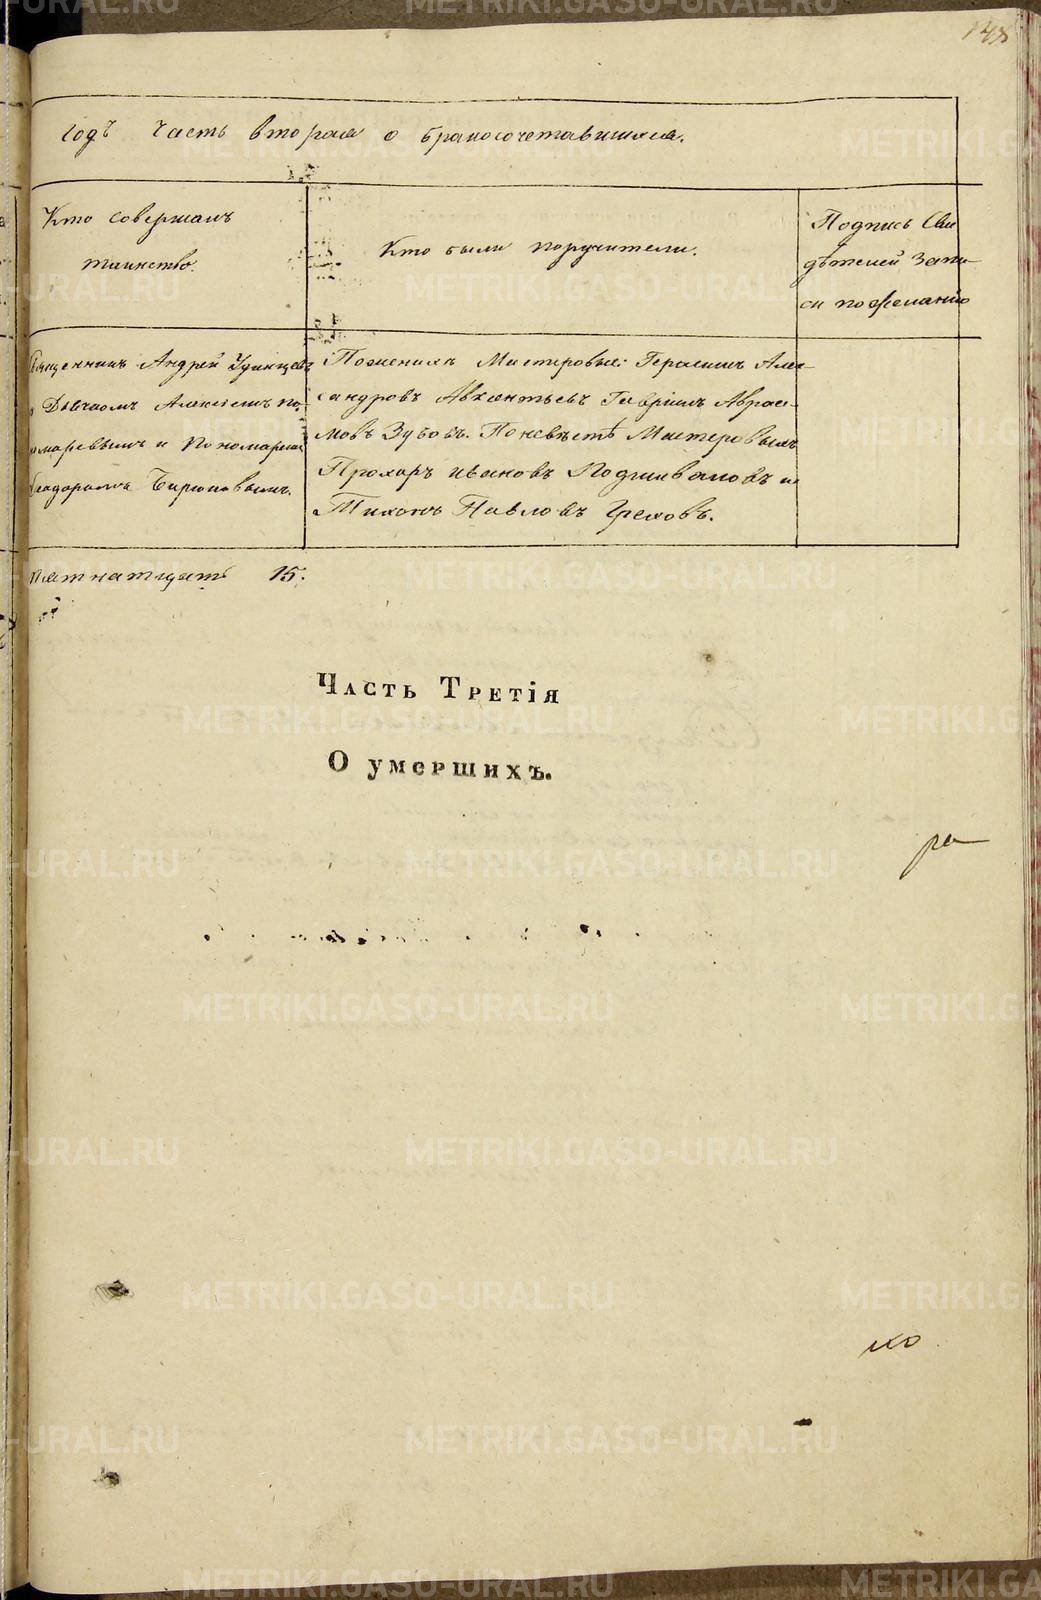 148
годъ часть вторая о бракосочетавшихся.
Кто совершалъ
таинство.
Кто были поручители.
Подпись Сви
дѣтелей запи-
си по желанію
Священникъ Андрей Удинцевъ
с Дьячкомъ Алексѣемъ По-
номаревымъ и Пономаремъ
Бирюковымъ.
По женихѣ Мастеровые: Герасимъ Алек-
сандровъ Авксентьевъ Гавріилъ Авраа-
мовъ Зубовъ. По невѣстѣ Мастеровыя
Прохоръ Ивановъ Подшиваловъ и
Тихонъ Павловъ Грековъ.
пятнатцать 15.
Часть Третія
О умершихъ.
ра
ко
METRIKI.GASO-URAL.RU